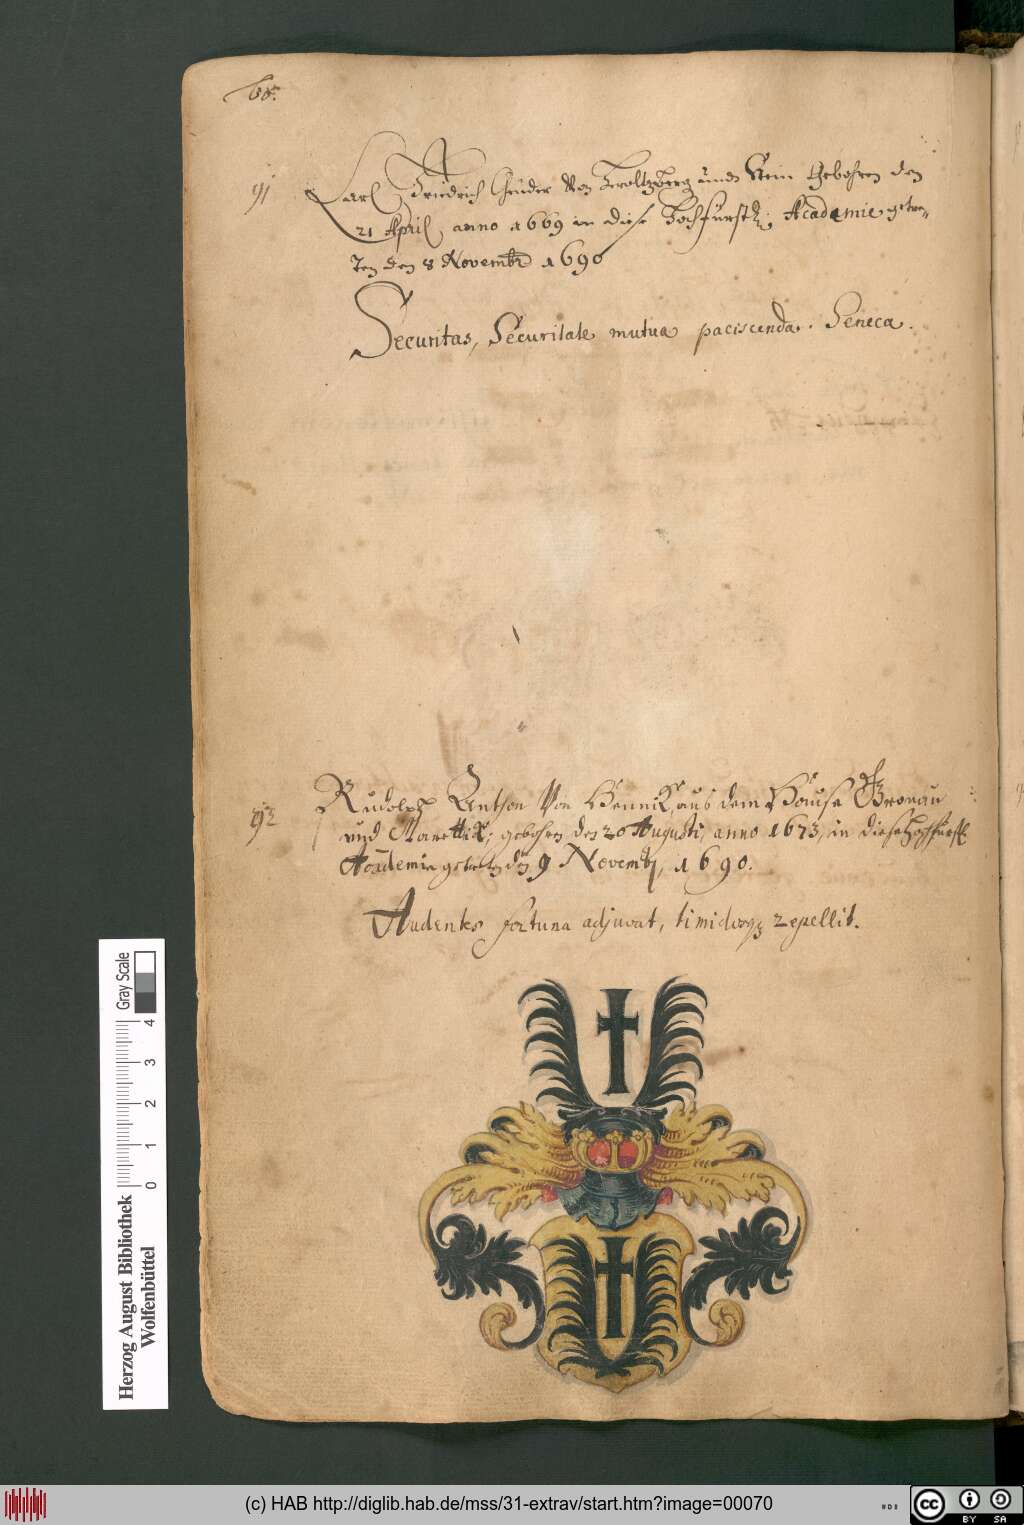 68.
91
Carl Friedrich Geüder Von Heroltzberg ünd Stein gebohren den
21 April anno 1669 in diese Hochfürstl: Academie getre-
ten den 8 Novembr 1690
Securitas, Securitate mutua paciscenda. Seneca.
92
Rudolph Anthon Von Bennix aus dem Hause Gronau
und gebohren den 20 Augusti, anno 1673, in diese Hochfürstl
Academie getretten den 9 Novembr, 1690.
Audentes fortuna adjuvat, timidosqz repellit.
Gray Scale
0 1 2 3 4
Herzog August Bibliothek
Wolfenbüttel
(c) HAB http://diglib.hab.de/mss/31-extrav/start.htm?image=00070
cc BY SA